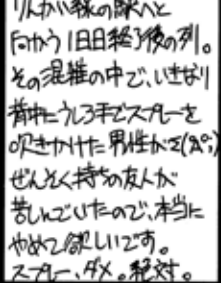 りんかい線の駅へと
向かう1日目終了後の列。
その混雑の中で、いきなり
背中にうしろ手でスプレーを
吹きかけた男性がΣ(゚Д゚;)
ぜんそく持ちの友人が
苦しんでいたので、本当に
やめて欲しいです。
スプレー、ダメ。絶対。